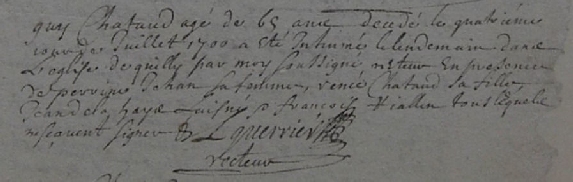 guy Chataud agé de 65 ans decedé le quatrieme
jour de Juillet 1700 a été Inhumé le lendemain dans
l'eglise de quilly par moy soussigné recteur En presence
de perrine Jahan sa femme, renée Chataud sa fille,
Jean de la haye François tous lesquels
ne sçavent signer
L guerrier
recteur